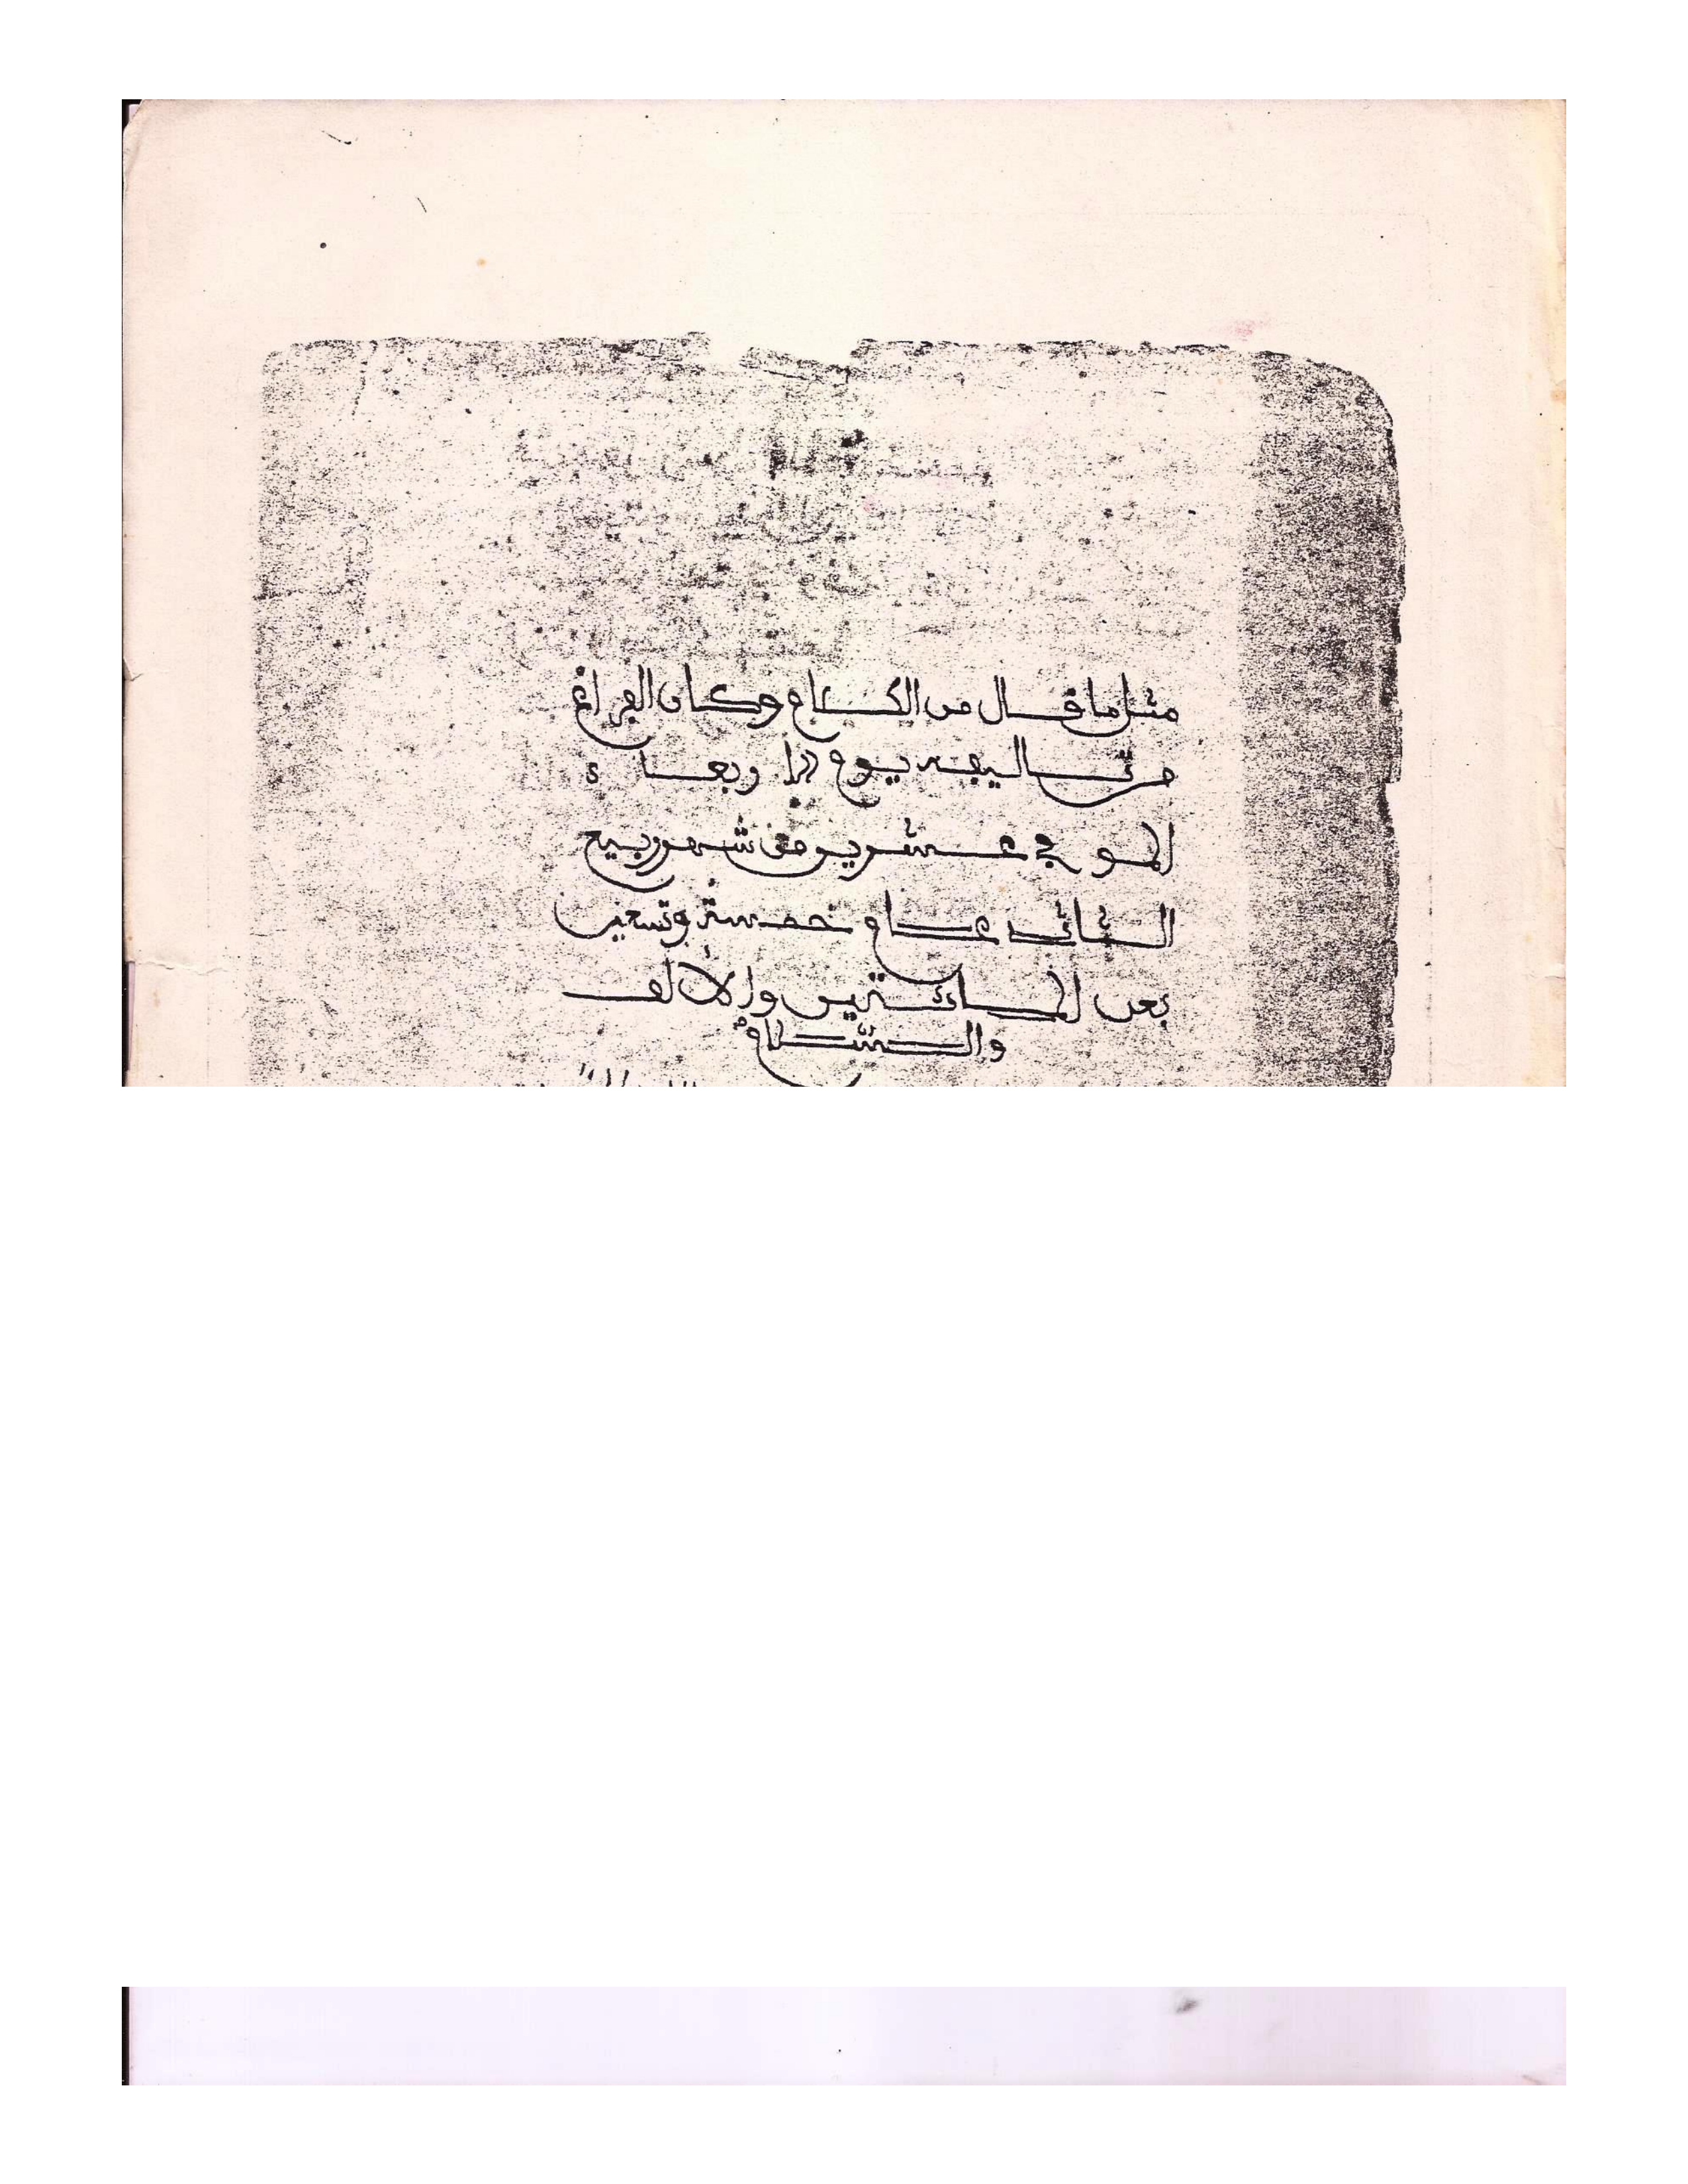 مثل ما قال من الكلام وكان الفراغ
من تاليفه يوم الاربعاء
الموفي عشرين من شهر ربيع
الثاني عام خمسة وتسعين
بعد المائتين والالف
والسلام